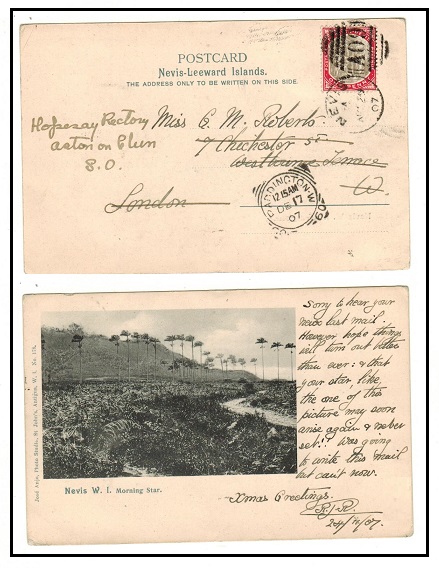 POSTCARD
Nevis-Leeward Islands.
THE ADDRESS ONLY TO BE WRITTEN ON THIS SIDE.
Miss C. M. Roberts
7 Chichester St
Westbourne Terrace
W.
London
Hopesay Rectory
Aston on Clun
S.O.
NEVIS
A
07
A09
PADDINGTON. W.
12 15 AM
DE 17
07
Sorry to hear your
news last mail.
However hope things
will turn out better
than ever: & that
your star, like,
the one of this
picture may soon
arise again & never
set!! Was going
to write this mail
but can't now.
Xmas Greetings.
R.J.R.
24/11/07.
Nevis W. I. Morning Star.
José Anjo, Photo Studio, St. John's, Antigua, W. I. No.